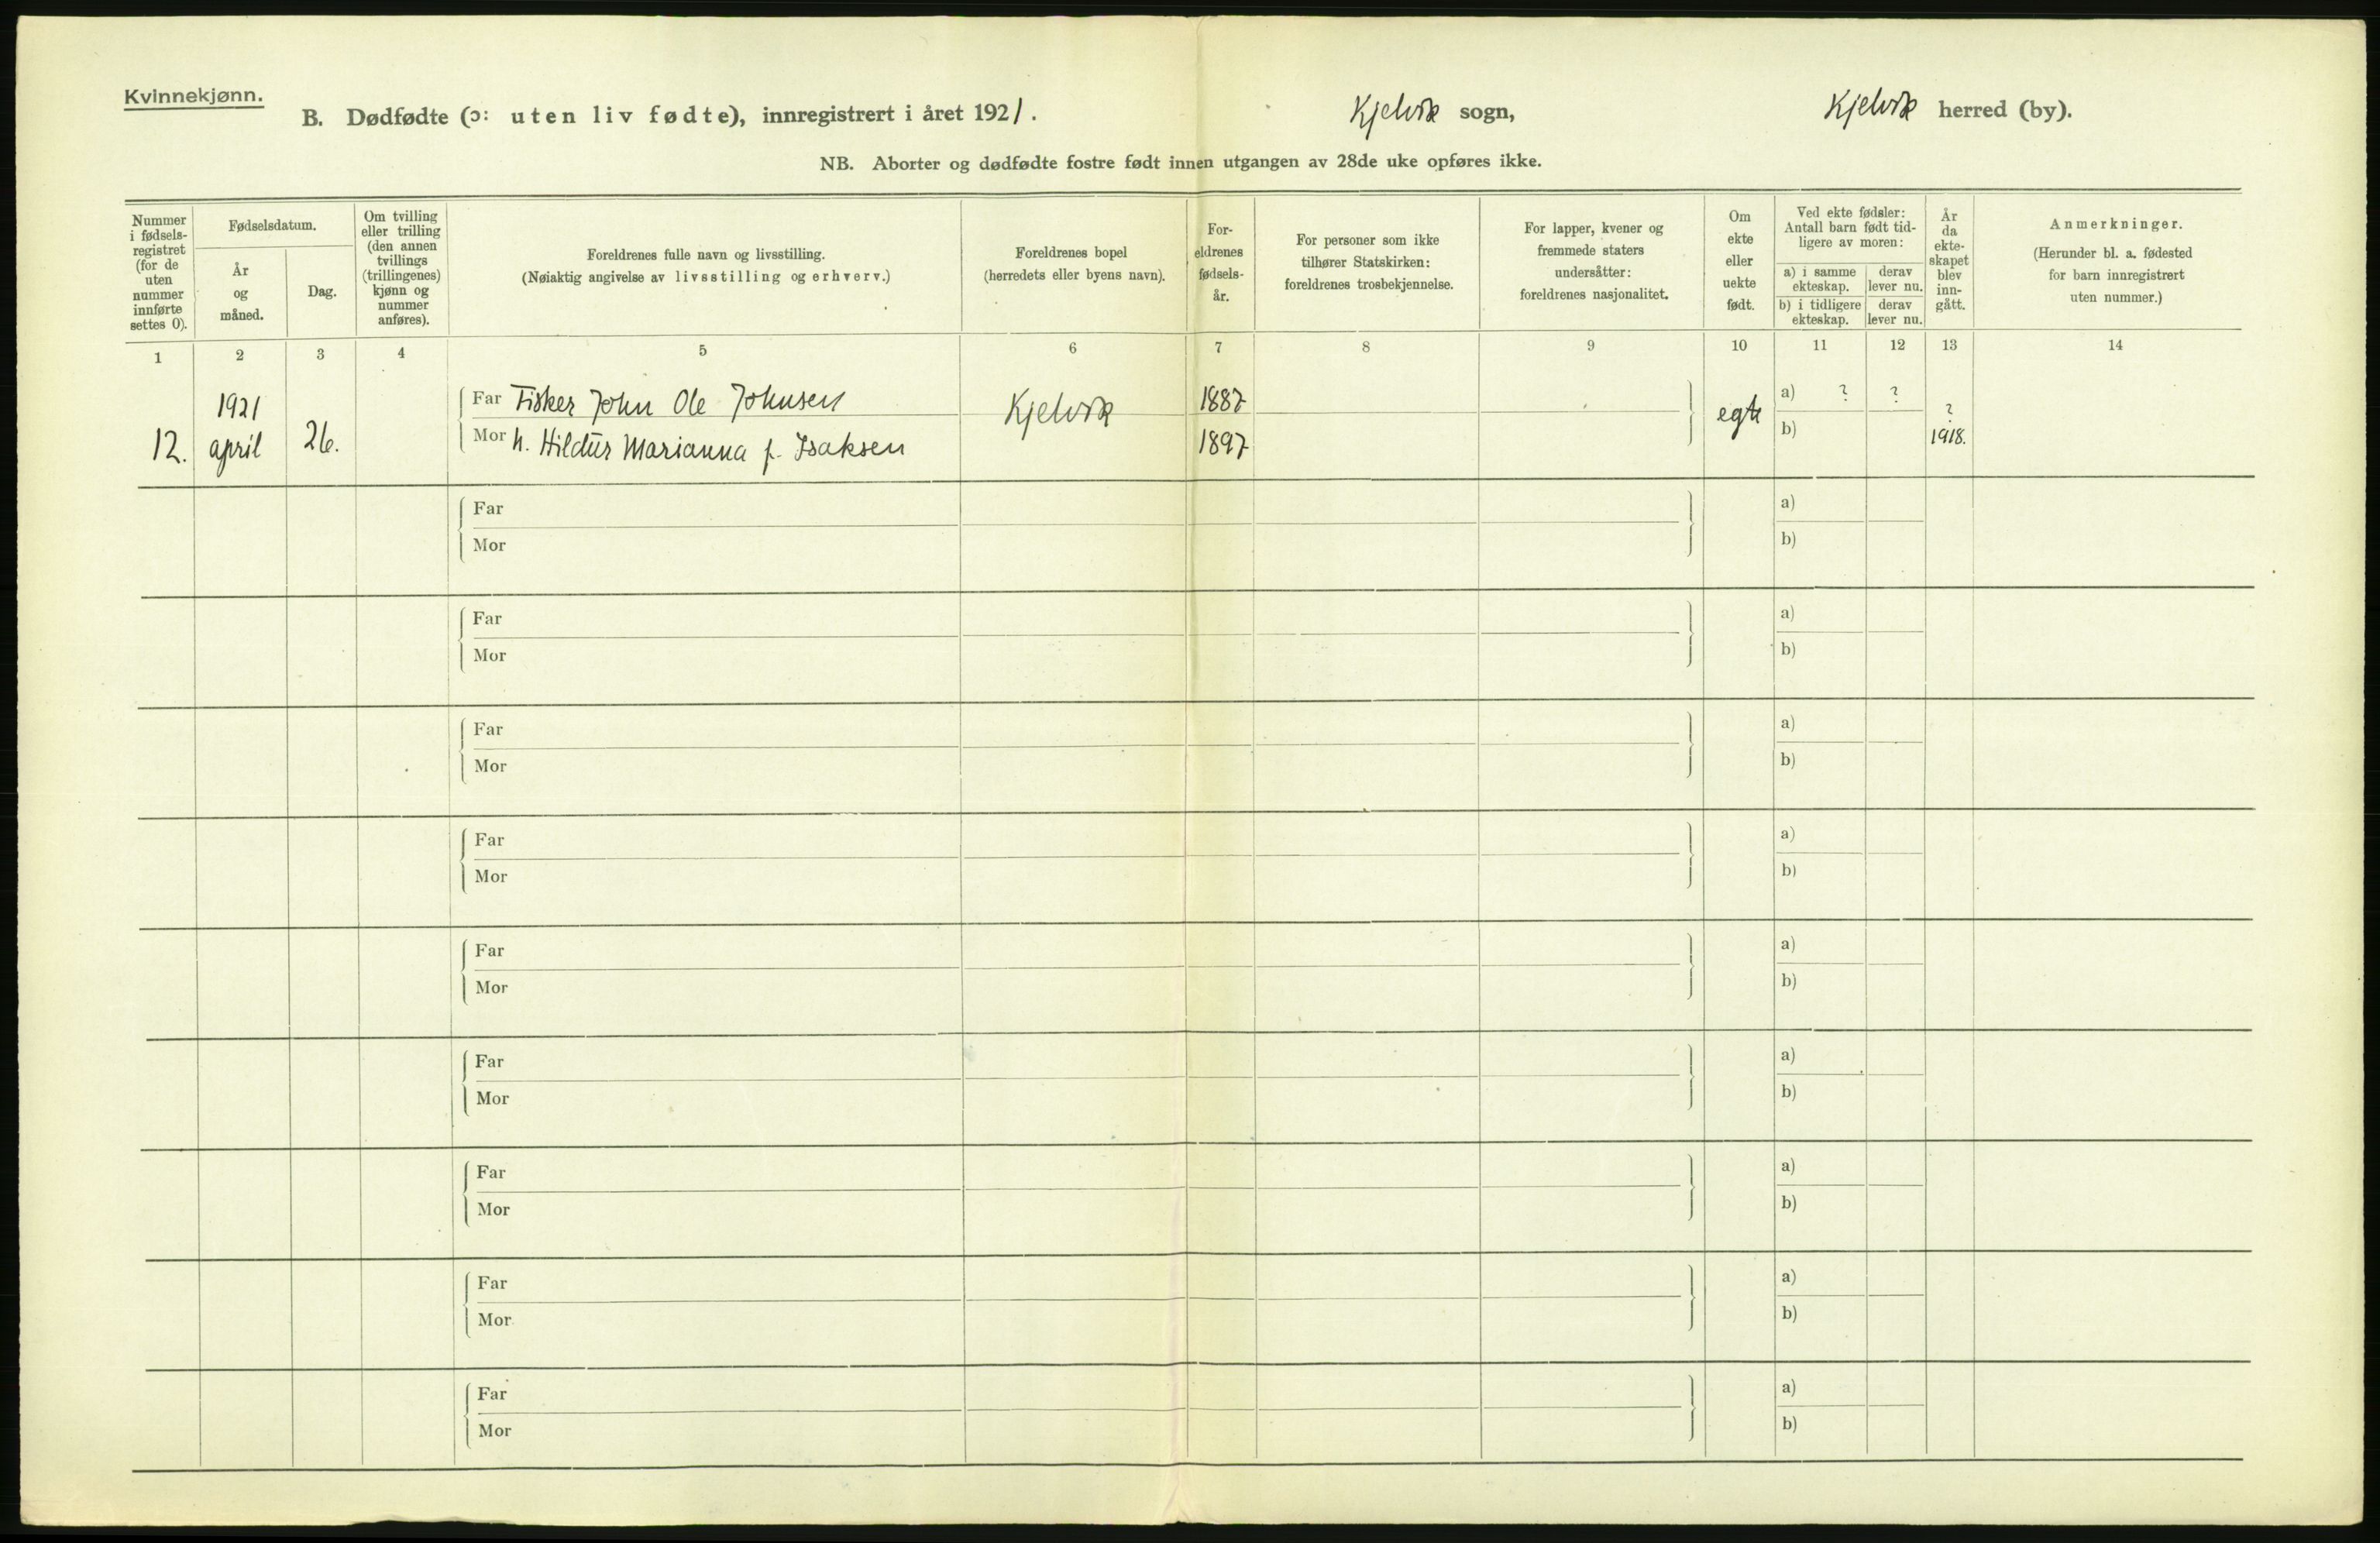 Kvinnekjønn.
B. Dødfødte (ɔ: uten liv fødte), innregistrert i året 1921. Kjelvik sogn, Kjelvik herred (by).
NB. Aborter og dødfødte fostre født innen utgangen av 28de uke opføres ikke.
Nummer
i fødsels-
registret
(for de
uten
nummer
innførte
settes 0).
Fødselsdatum.
År
og
måned.
Dag.
Om tvilling
eller trilling
(den annen
tvillings
(trillingenes)
kjønn og
nummer
anføres).
Foreldrenes fulle navn og livsstilling.
(Nøiaktig angivelse av livsstilling og erhverv.)
Foreldrenes bopel
(herredets eller byens navn).
For-
eldrenes
fødsels-
år.
For personer som ikke
tilhører Statskirken:
foreldrenes trosbekjennelse.
For lapper, kvener og
fremmede staters
undersåtter:
foreldrenes nasjonalitet.
Om
ekte
eller
uekte
født.
Ved ekte fødsler:
Antall barn født tid-
ligere av moren:
a) i samme
ekteskap.
derav
lever nu.
b) i tidligere
ekteskap.
derav
lever nu.
År
da
ekte-
skapet
blev
inn-
gått.
Anmerkninger.
(Herunder bl. a. fødested
for barn innregistrert
uten nummer.)
1 2 3 4 5 6 7 8 9 10 11 12 13 14
1921 Far Fisker John Ole Johnsen Kjelvik 1887 egte a) ? ? ?
12. april 26. Mor h. Hildur Marianna f. Isaksen 1897 b) 1918.
Far a)
Mor b)
Far a)
Mor b)
Far a)
Mor b)
Far a)
Mor b)
Far a)
Mor b)
Far a)
Mor b)
Far a)
Mor b)
Far a)
Mor b)
Far a)
Mor b)